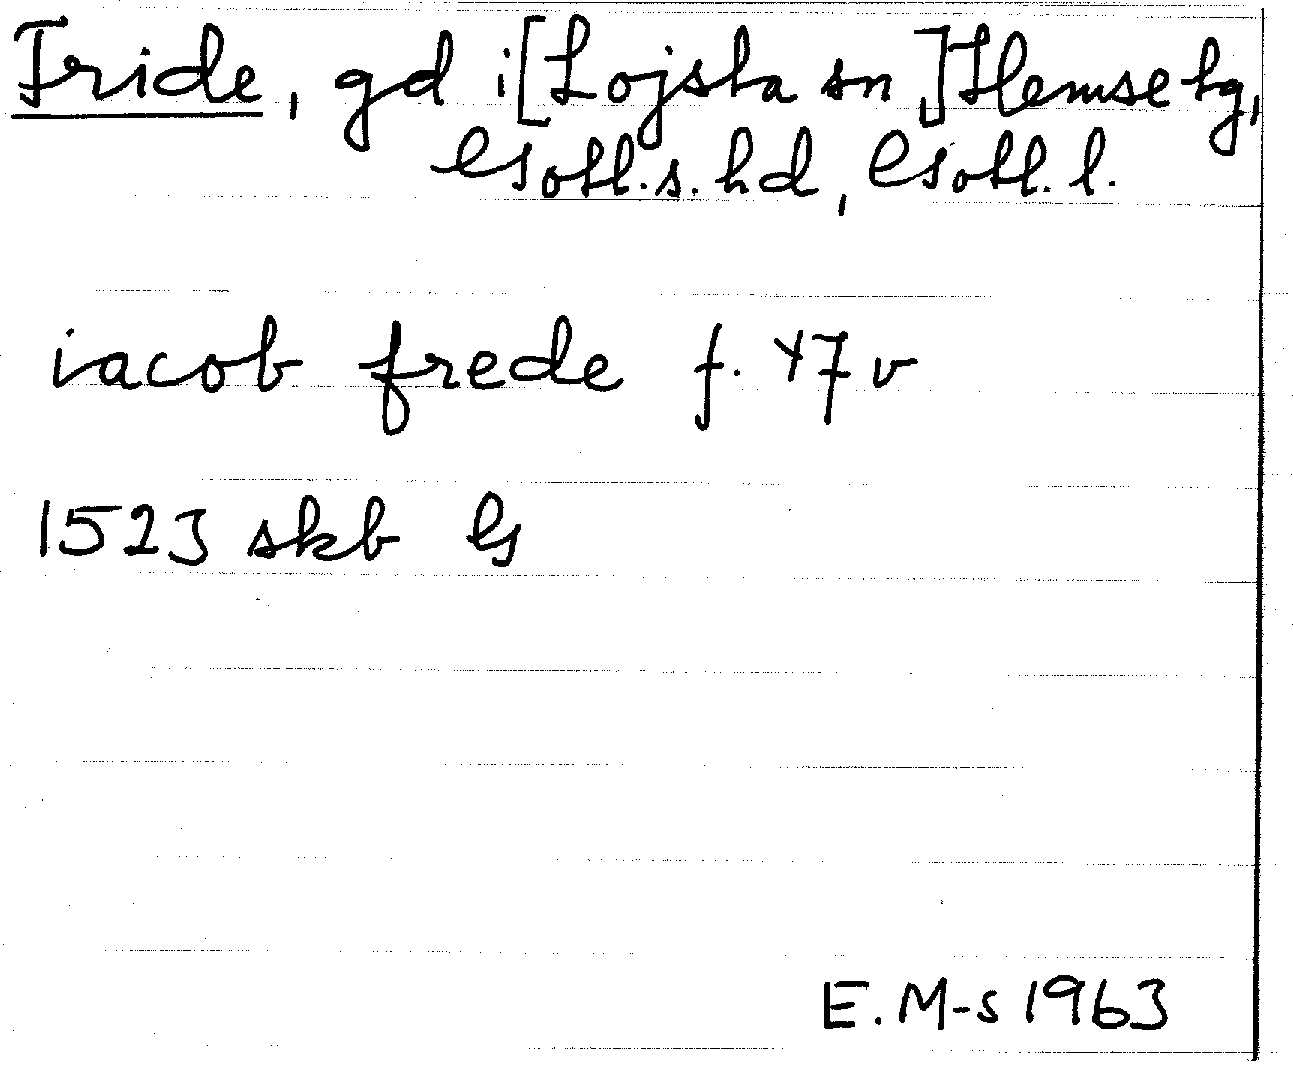 Fride, gd i [Lojsta sn] Hemse tg,
Gotl. s. hd, Gotl. l.
iacob frede f. 47 v
1523 skb G
E. M-s 1963